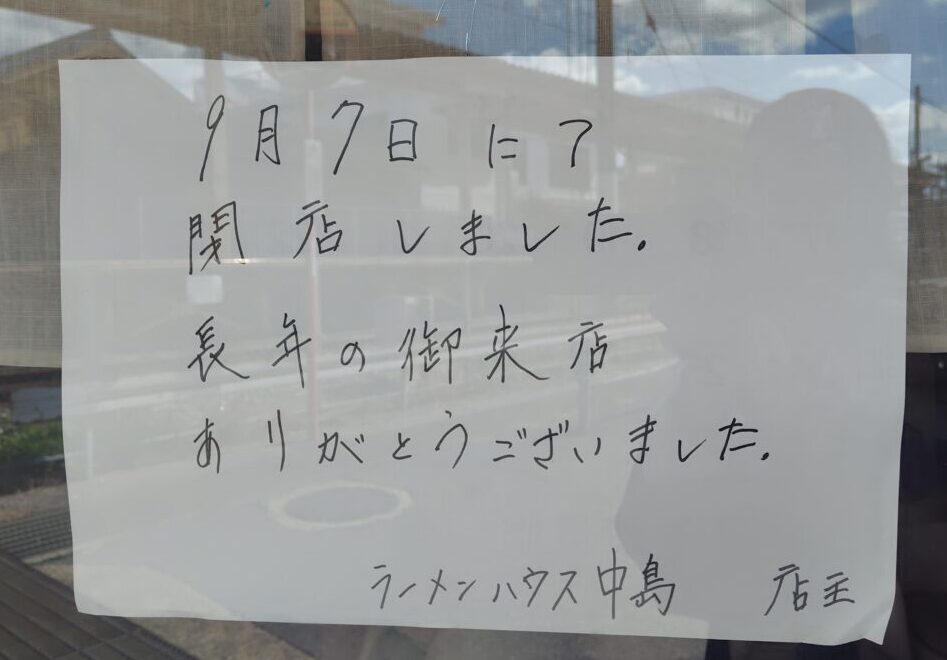 9月7日にて
閉店しました。
長年の御来店
ありがとうございました。
ラーメンハウス中島 店主